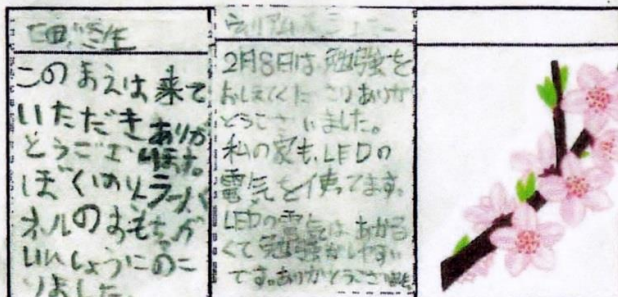 このまえは来て
いただきありが
とうございます。
ぼくはソーラーパ
ネルのおもちゃが
いんしょうにのこ
りました。
2月8日は、勉強を
おしえてくださりありが
とうございました。
私の家も、LEDの
電気を使ってます。
LEDの電気はあかる
くて勉強がしやすい
です。ありがとうござい